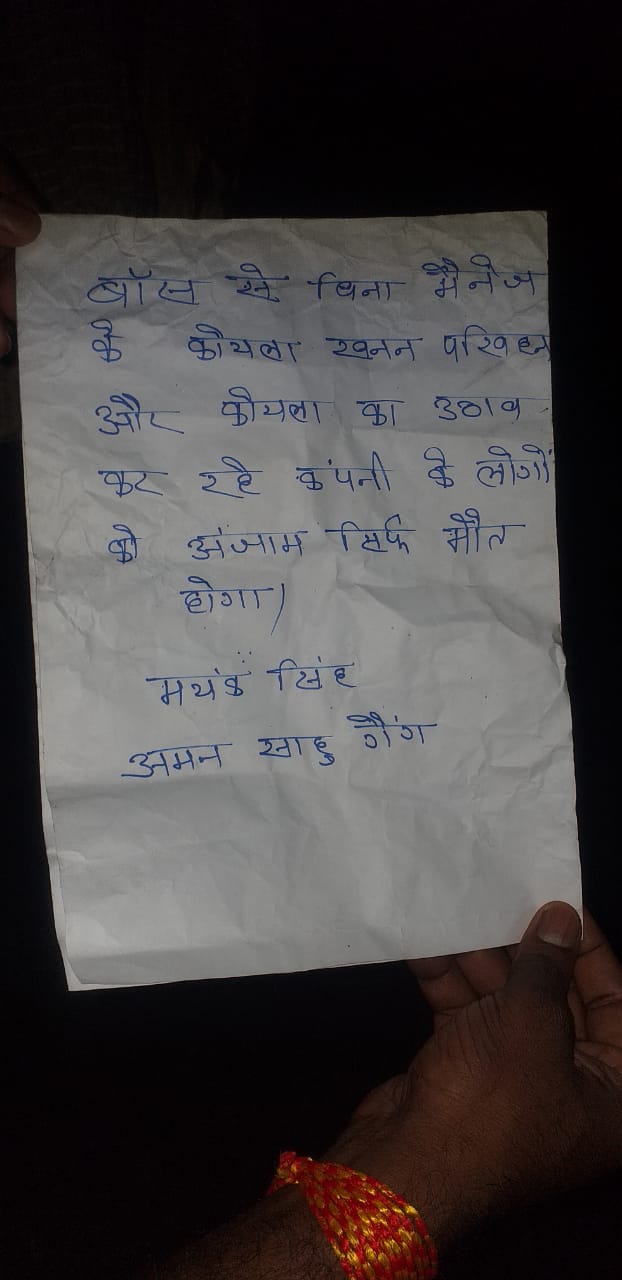 बॉस से बिना मैनेज
के कोयला खनन परिवहन
और कोयला का उठाव
कर रहे कंपनी के लोगों
को अंजाम सिर्फ मौत
होगा।
मयंक सिंह
अमन साहु गैंग